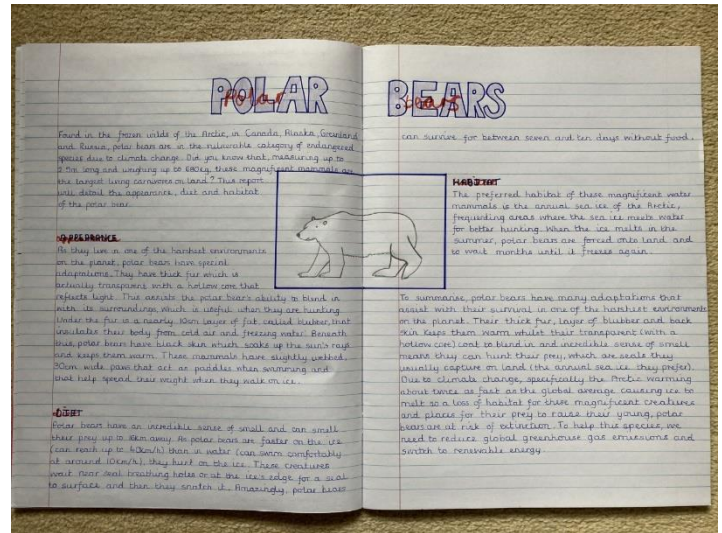 POLAR BEARS
Found in the frozen wilds of the Arctic, in Canada, Alaska, Greenland
and Russia, polar bears are in the vulnerable category of endangered
species due to climate change. Did you know that, measuring up to
2.5m long and weighing up to 680kg, these magnificent mammals are
the largest living carnivores on land? This report
will detail the appearance, diet and habitat
of the polar bear.
APPEARANCE
As they live in one of the harshest environments
on the planet, polar bears have special
adaptations. They have thick fur which is
actually transparent with a hollow core that
reflects light. This assists the polar bear's ability to blend in
with its surroundings which is useful when they are hunting.
Under the fur is a nearly 10cm layer of fat, called blubber, that
insulates their body from cold air and freezing water. Beneath
this, polar bears have black skin which soaks up the sun's rays
and keeps them warm. These mammals have slightly webbed,
30cm wide paws that act as paddles when swimming and
that help spread their weight when they walk on ice.
DIET
Polar bears have an incredible sense of smell and can smell
their prey up to 16km away. As polar bears are faster on the ice
(can reach up to 40km/h) than in water (can swim comfortably
at around 10km/h), they hunt on the ice. These creatures
wait near seal breathing holes or at the ice's edge for a seal
to surface and then they snatch it. Amazingly, polar bears
can survive for between seven and ten days without food.
HABITAT
The preferred habitat of these magnificent water
mammals is the annual sea ice of the Arctic,
frequenting areas where the sea ice meets water
for better hunting. When the ice melts in the
summer, polar bears are forced onto land and
to wait months until it freezes again.
To summarise, polar bears have many adaptations that
assist with their survival in one of the harshest environments
on the planet. Their thick fur, layer of blubber and back
skin keeps them warm whilst their transparent (with a
hollow core) coat to blend in and incredible sense of small
means they can hunt their prey, which are seals they
usually capture on land (the annual sea ice they prefer).
Due to climate change, specifically the Arctic warming
about twice as fast as the global average causing ice to
melt so a loss of habitat for these magnificent creatures
and places for their prey to raise their young, polar
bears are at risk of extinction. To help this species, we
need to reduce global greenhouse gas emissions and
switch to renewable energy.